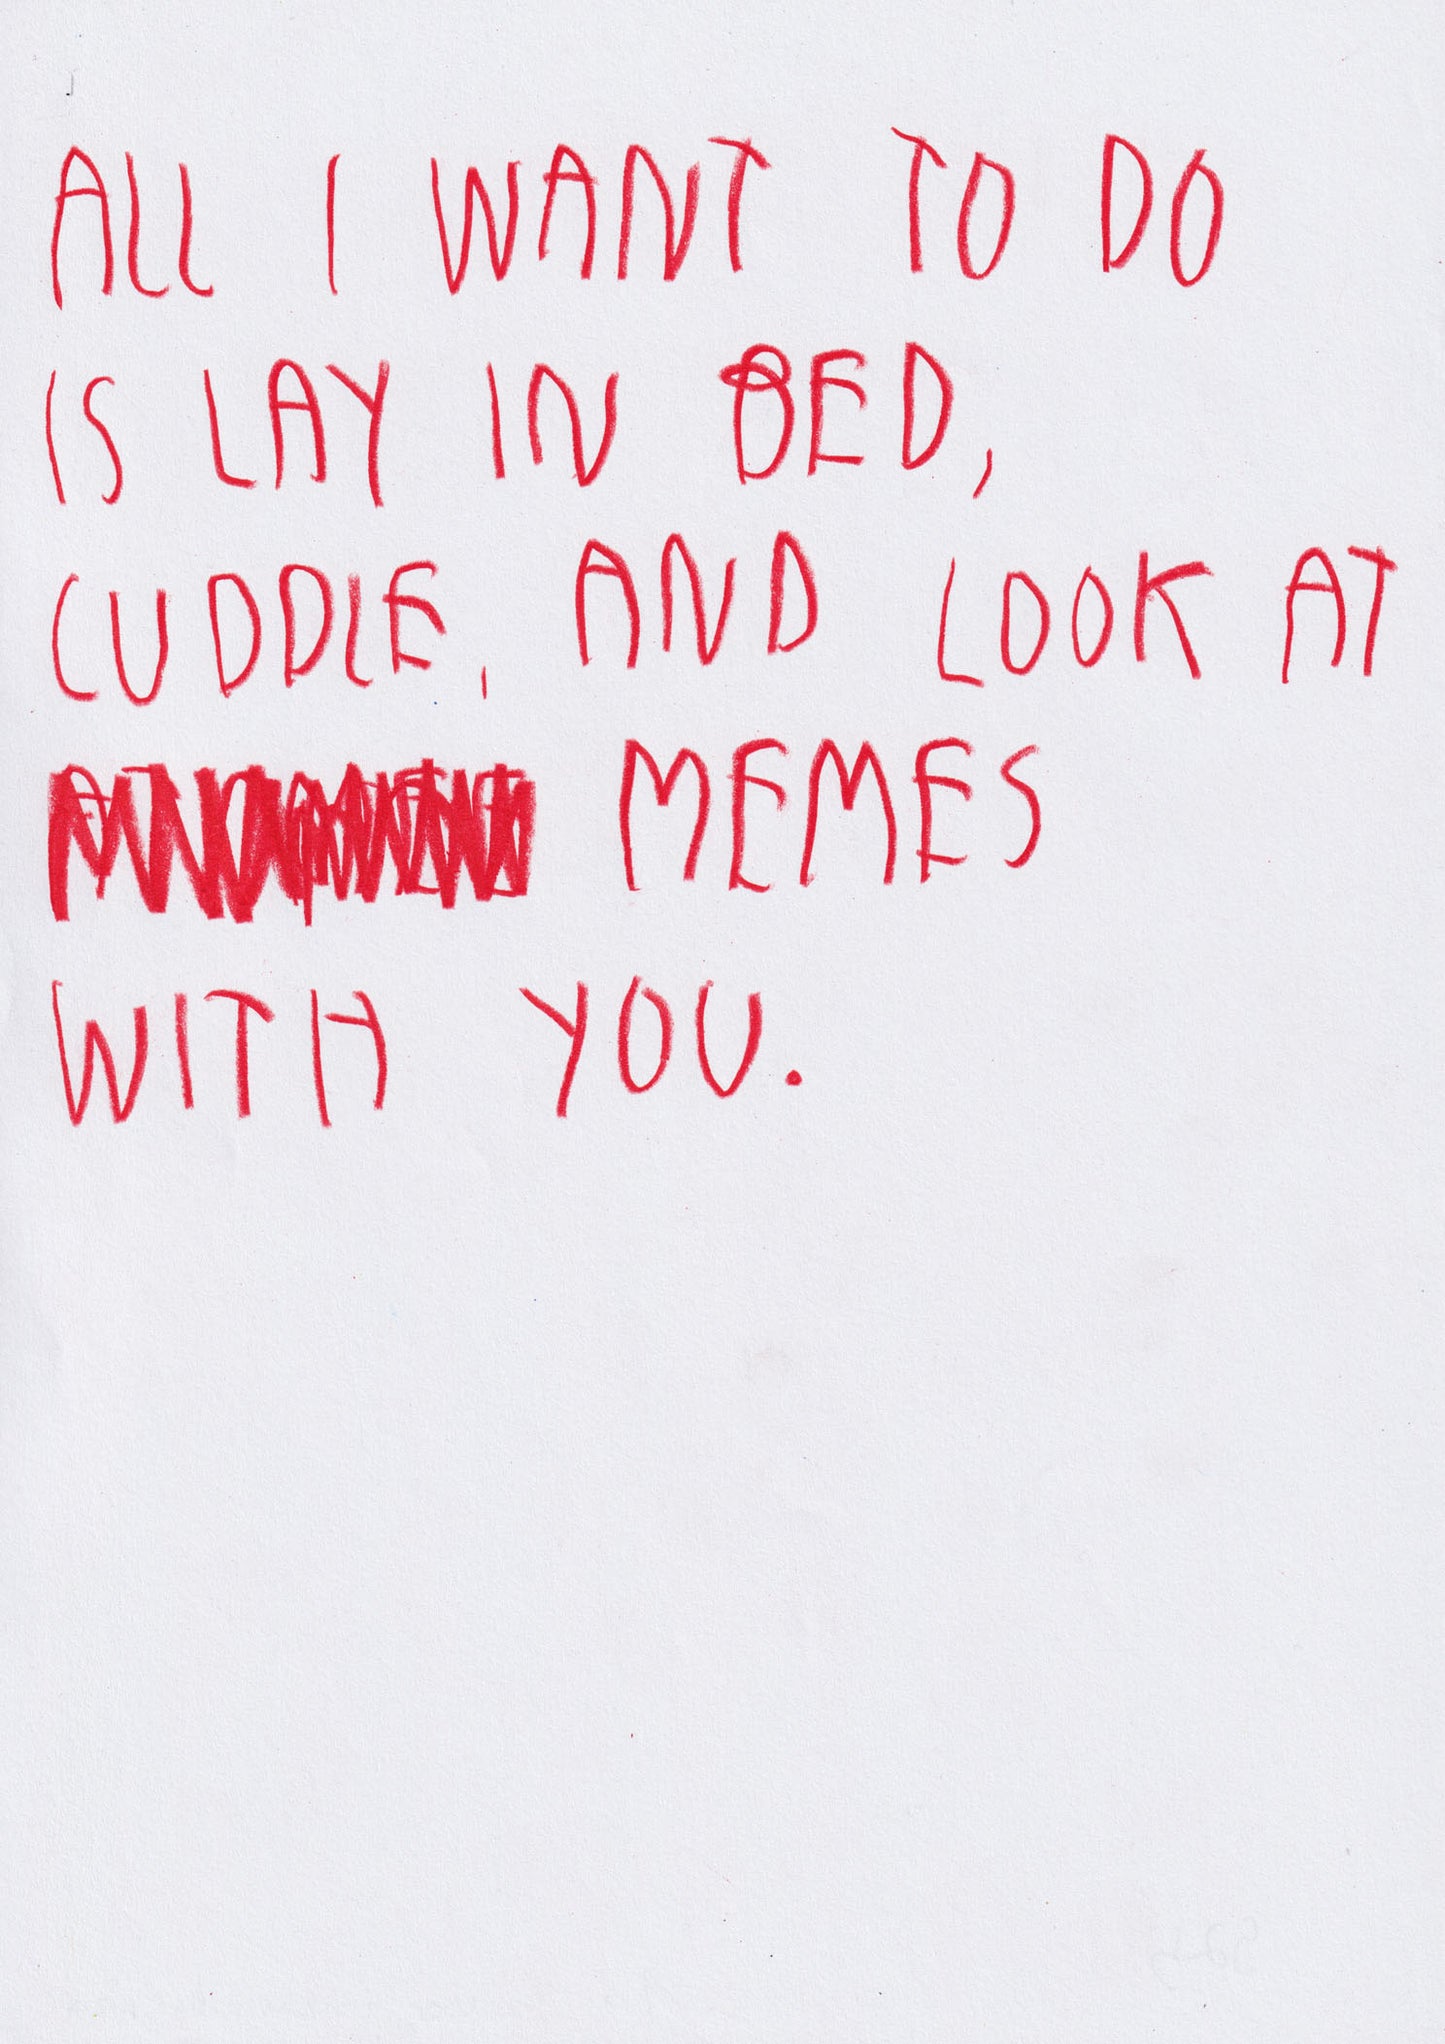 ALL I WANT TO DO
IS LAY IN BED,
CUDDLE, AND LOOK AT
MEMES
WITH YOU.